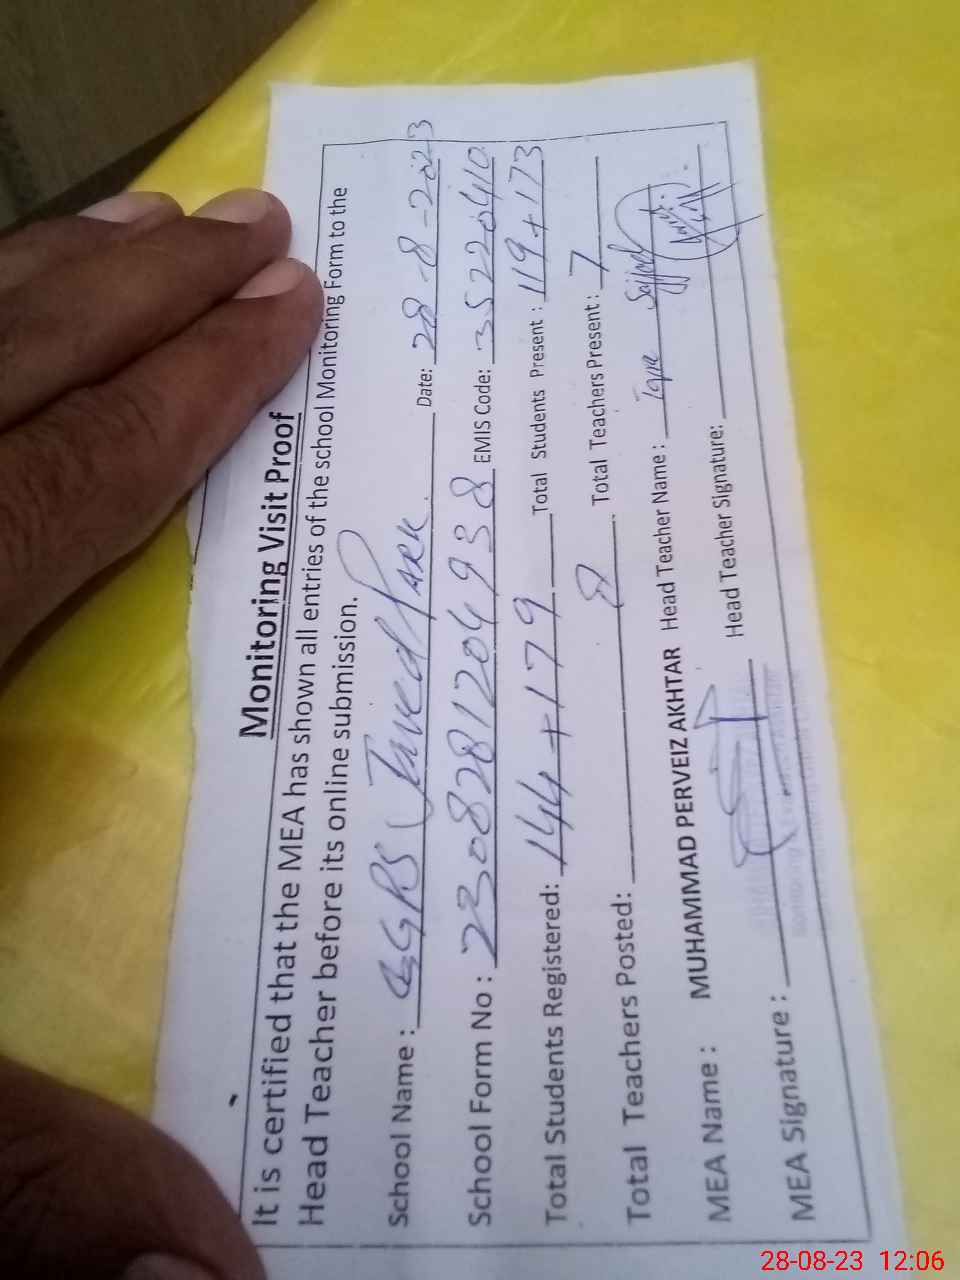 Monitoring Visit Proof
It is certified that the MEA has shown all entries of the school Monitoring Form to the
Head Teacher before its online submission.
School Name : GGPS Javed Park. Date: 28-8-2023
School Form No : 2308281204938 EMIS Code: 35220410
Total Students Registered: 144+179 Total Students Present : 119+173
Total Teachers Posted: 8 Total Teachers Present : 7
MEA Name : MUHAMMAD PERVEIZ AKHTAR Head Teacher Name : Iqra Sajjad
MEA Signature : Head Teacher Signature:
28-08-23 12:06